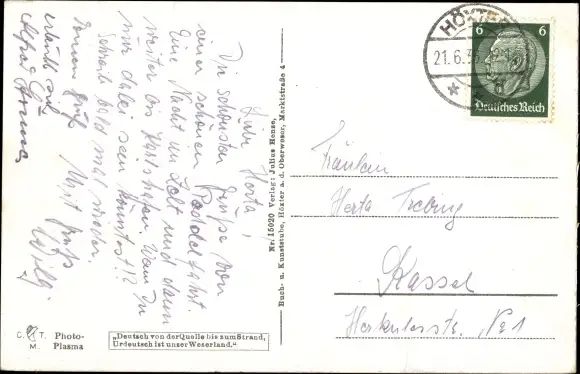 Liebe Herta!
Die schönsten Grüße von
einer schönen Paddelfahrt.
Eine Nacht im Zelt und dann
weiter bis Karlshafen. Wenn Du
nur dabei sein könntest!?
Schreib bald mal wieder.
Mit Gruß
Willy.
erlaubt sich
Nr. 15020 Verlag: Julius Henze,
Buch- u. Kunststube, Höxter a. d. Oberweser, Marktstraße 4
HÖXTER
21.6.3
6 6
Deutsches Reich
Fräulein
Herta Trebing
Kassel
Herkulesstr. No 1
C. T. Photo-
M. Plasma
„Deutsch von der Quelle bis zum Strand,
Urdeutsch ist unser Weserland.“